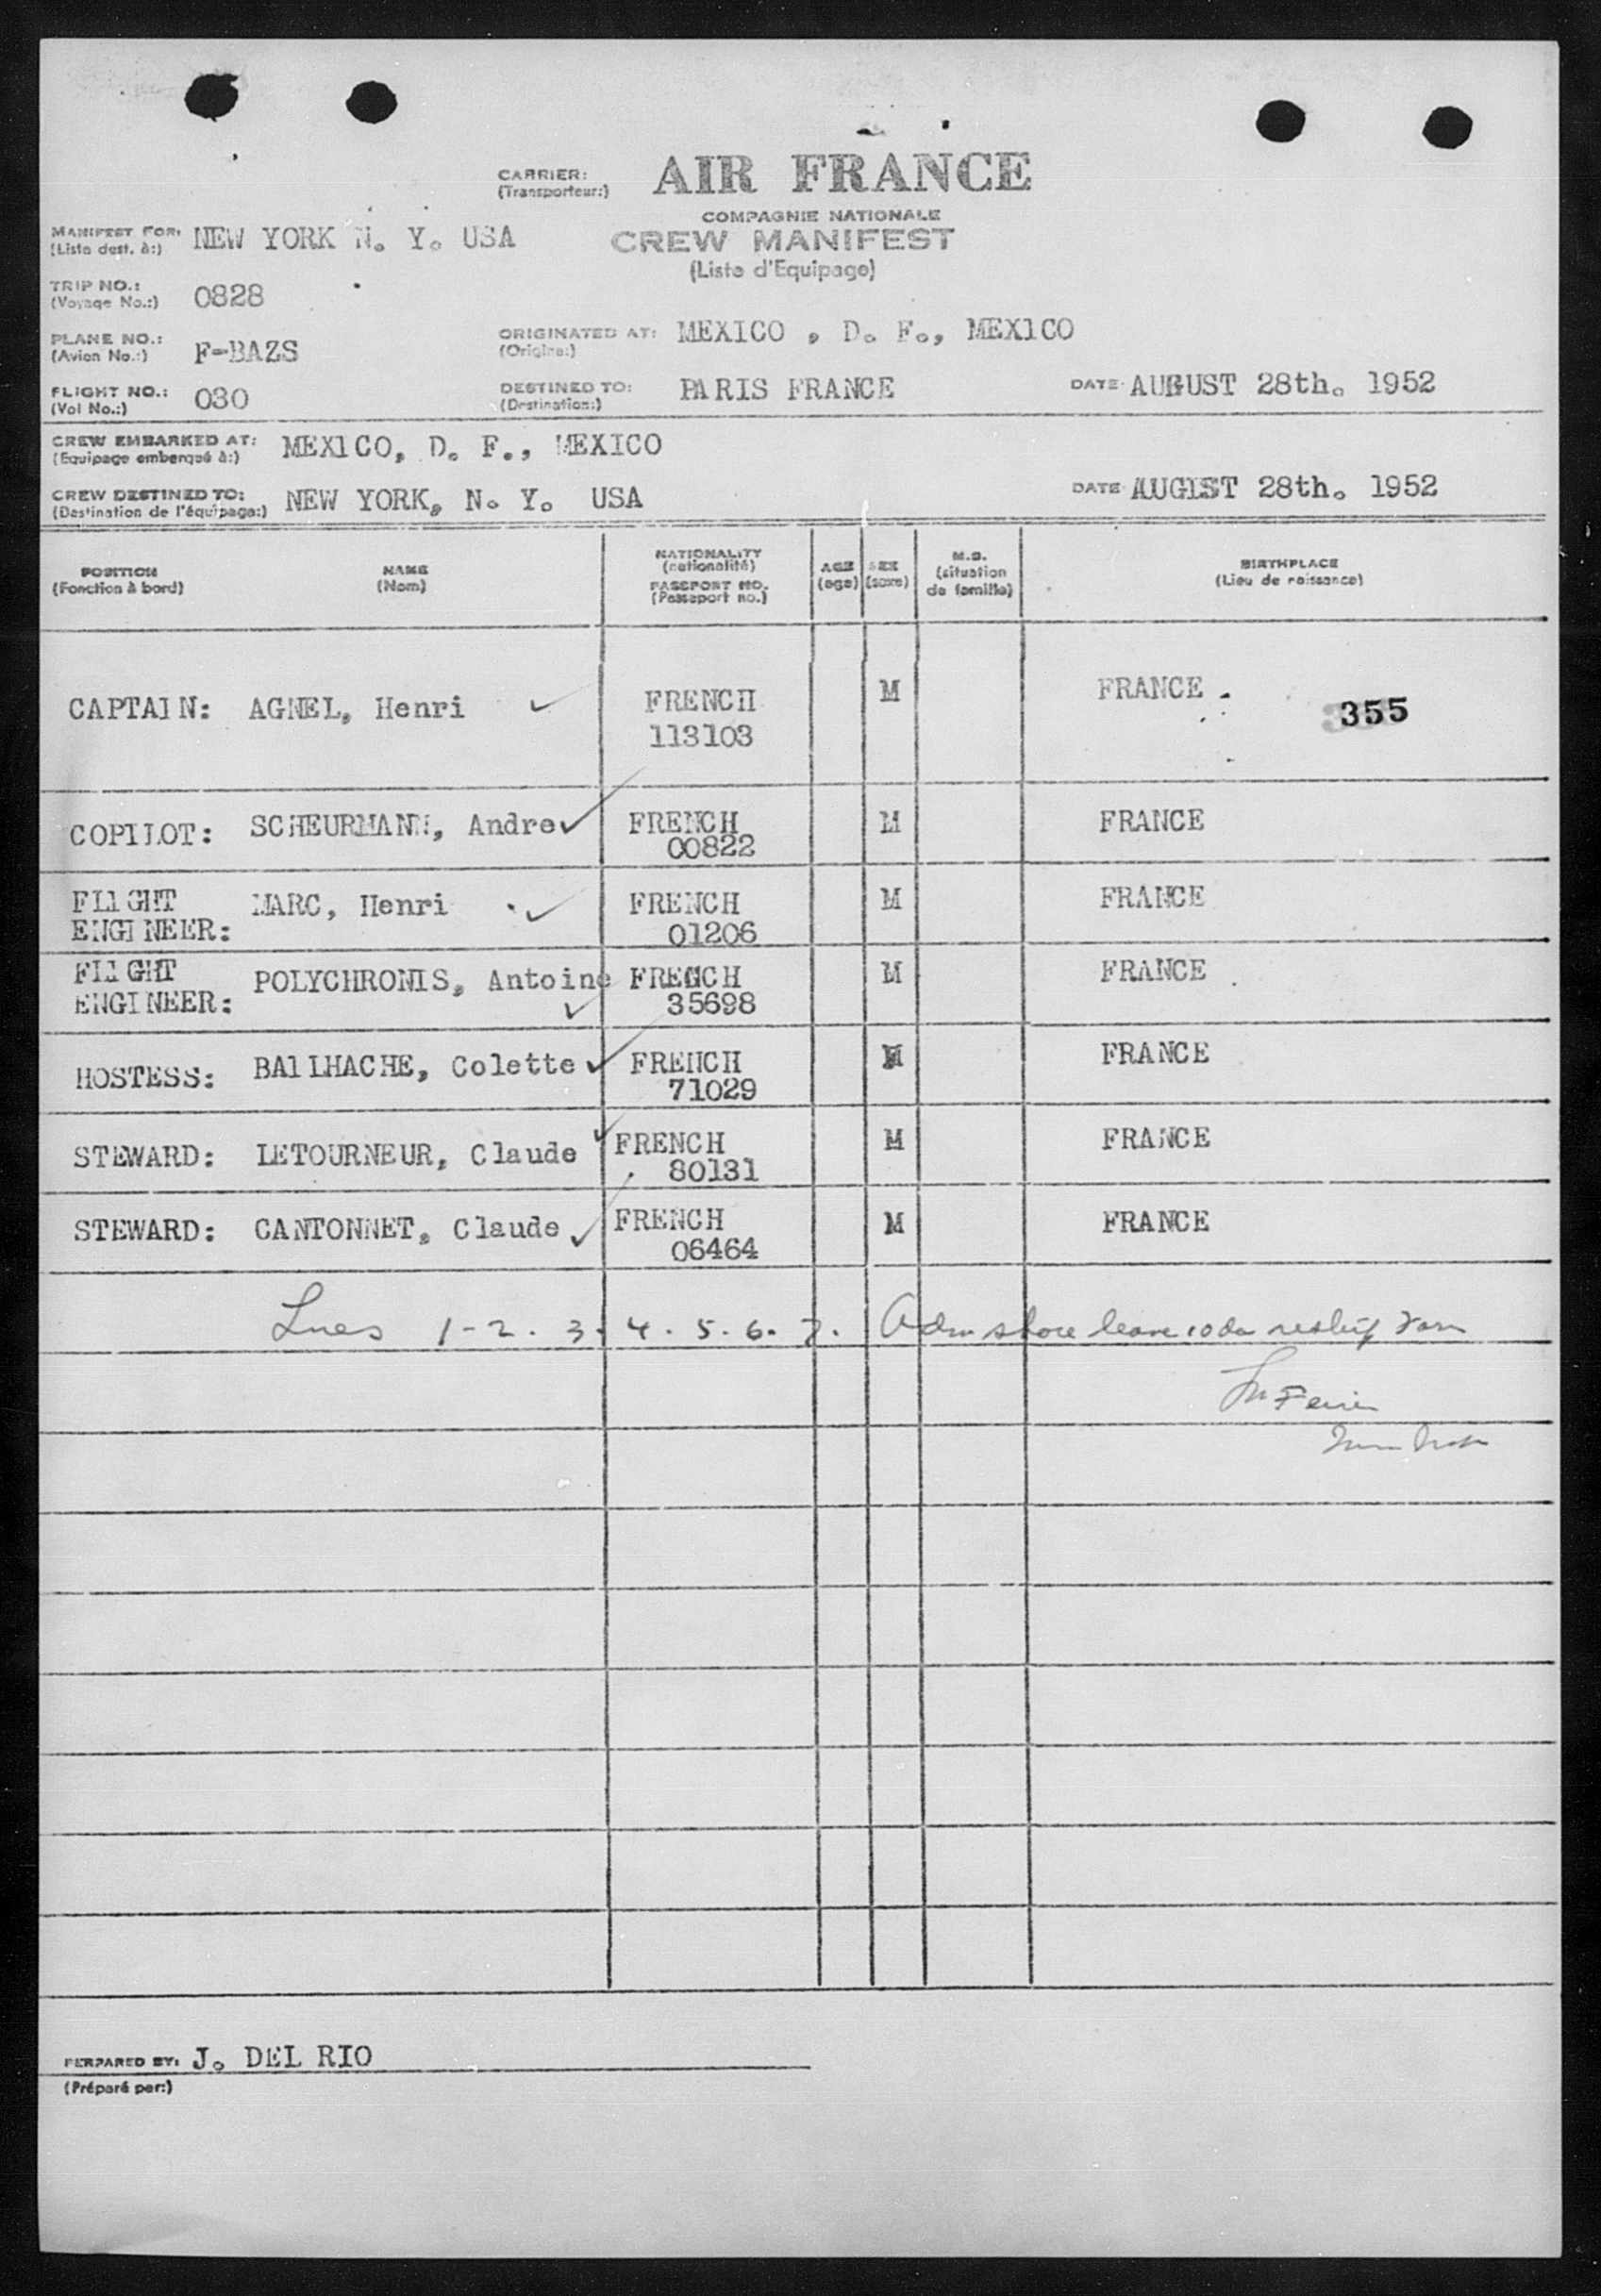 CARRIER: AIR FRANCE
(Transporteur:)
COMPAGNIE NATIONALE
MANIFEST FOR: NEW YORK N. Y. USA
(Liste dest. à:)
CREW MANIFEST
(Liste d'Equipage)
TRIP NO.: 0828
(Voyage No.:)
PLANE NO.: F-BAZS
(Avion No.:)
ORIGINATED AT: MEXICO , D. F., MEX1CO
(Origine:)
FLIGHT NO.: 030
(Vol No.:)
DESTINED TO: PARIS FRANCE
(Destination:)
DATE AUGUST 28th. 1952
CREW EMBARKED AT: MEX1CO, D. F., MEXICO
(Equipage embarqué à:)
CREW DESTINED TO: NEW YORK, N. Y. USA
(Destination de l'équipage:)
DATE AUGIST 28th. 1952
POSITION
(Fonction à bord)
NAME
(Nom)
NATIONALITY
(nationalité)
PASSPORT NO.
(Passeport no.)
AGE
(age)
SEX
(sexe)
M.S.
(situation
de famille)
BIRTHPLACE
(Lieu de naissance)
CAPTAIN: AGNEL, Henri FRENCH M FRANCE
113103
355
COPILOT: SCHEURMANN, Andre FRENCH M FRANCE
00822
FL1GHT MARC, Henri FRENCH M FRANCE
ENGINEER: 01206
FL1GHT POLYCHRONIS, Antoine FRENCH M FRANCE
ENGINEER: 35698
HOSTESS: BA1LHACHE, Colette FRENCH FRANCE
71029
STEWARD: LETOURNEUR, Claude FRENCH M FRANCE
80131
STEWARD: CANTONNET, Claude FRENCH M FRANCE
06464
Lines 1-2. 3. 4. 5. 6. 7. Adm shore leave
PERPARED BY: J. DEL RIO
(Préparé par:)